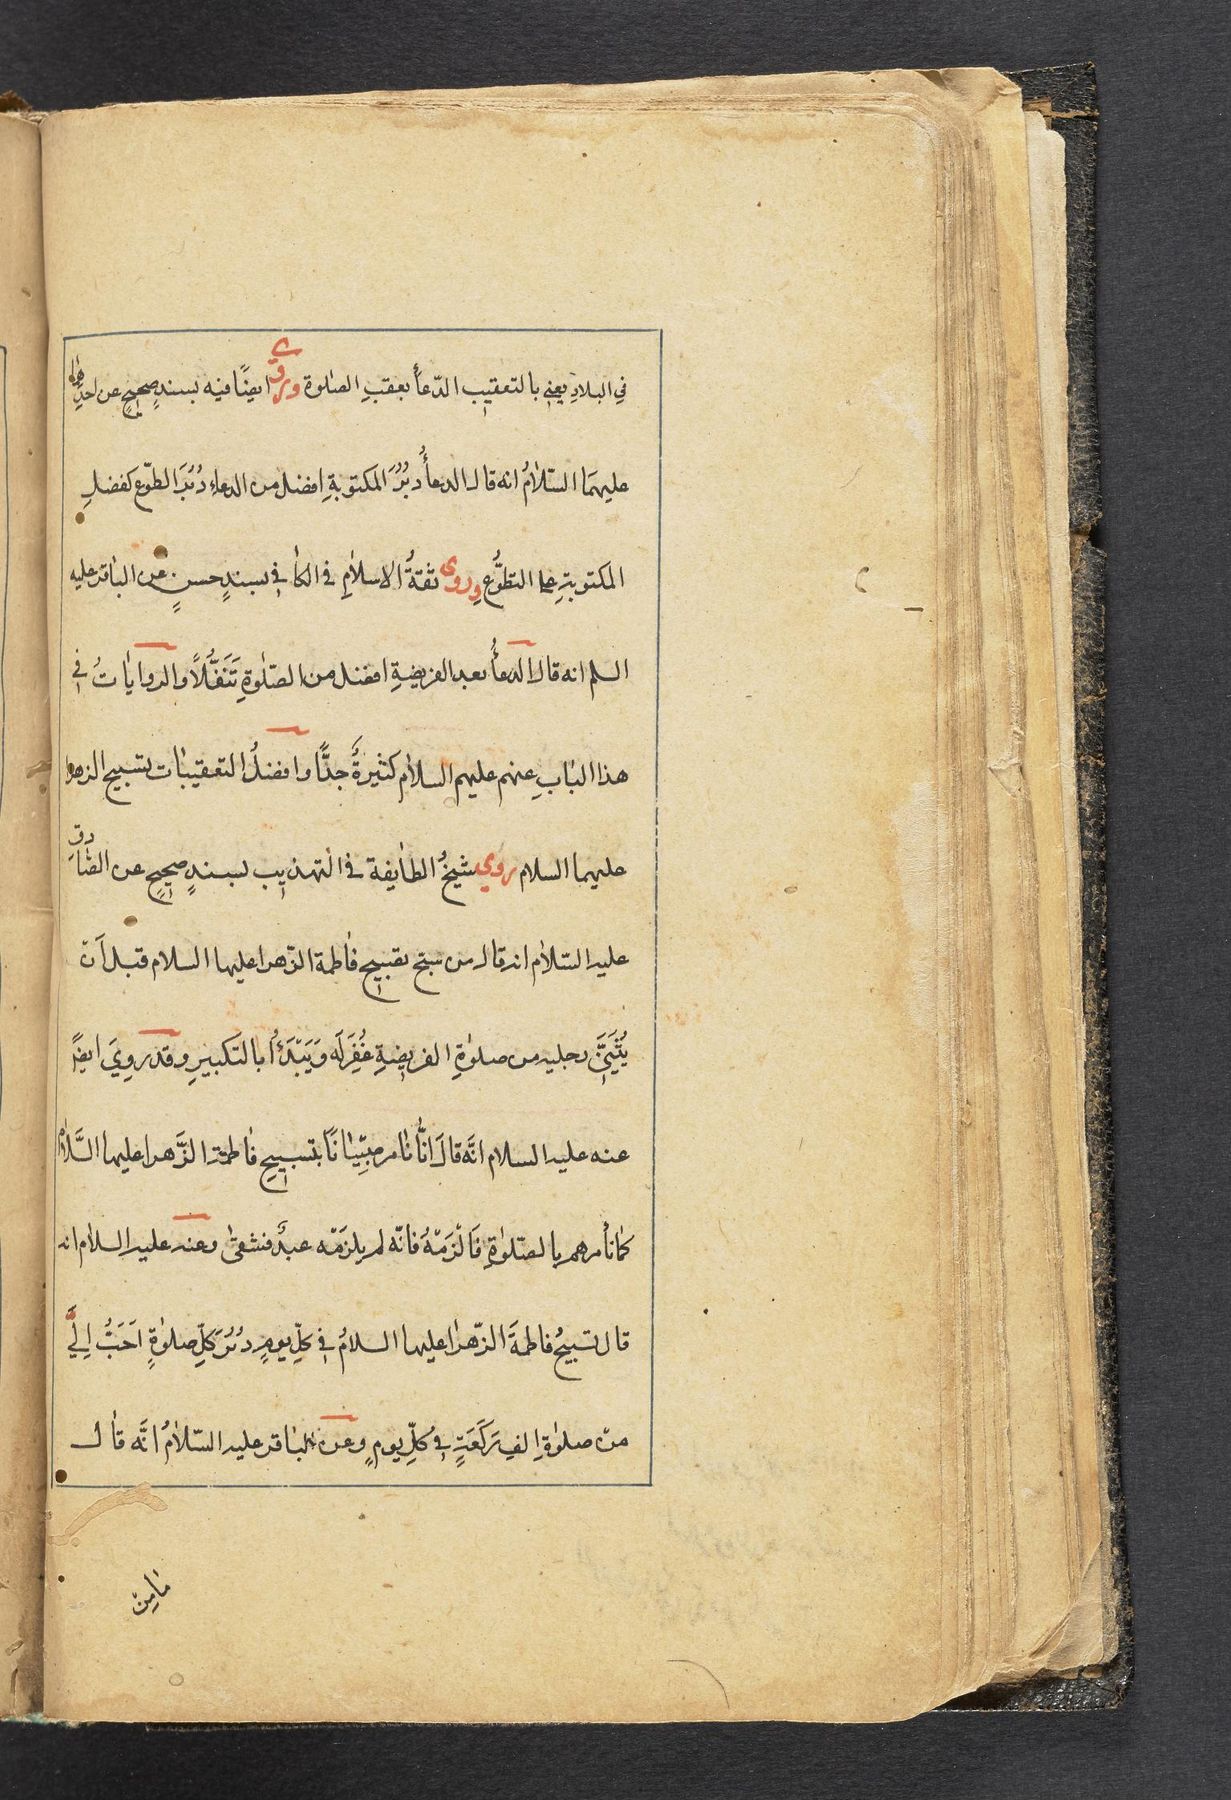 في البلادِ يعني بالتعقيب الدّعاءُ بعقبِ الصّلوة وروي ايضًا فيه بسندٍ صحيحٍ عن احدِهما
عليهمَا السّلامُ انه قال الدعاءُ دبُرَ المكتوبةِ افضل من الدعاءِ دُبُرَ الطوّع كفضلِ
المكتوبةِ على التطوُّعِ وروى ثقةُ الاسلامِ في الكافي بسندٍ حسنٍ عن الباقر عليه
السلم انه قال الدعاءُ بعد الفريضةِ افضل من الصّلوةِ تَنَفُّلاً والروايات في
هذا البابِ عنهم عليهم السلام كثيرةٌ جدًّا وافضلُ التعقيبات تسبيح الزهرا
عليهما السلام روي شيخُ الطايفة في التهذيب بسندٍ صحيحٍ عن الصّادق
عليه السّلام انه قال من سبّح تسبيح فاطمة الزّهرا عليها السلام قبل اَن
يُثَنِّيَ رجليه من صلوةِ الفريضةِ غُفِرَ لَه وَيَبْدَءُ بالتكبيرِ وقد رويَ ايضًا
عنه عليه السلام انَّه قالَ انّا نامر صِبْيَانَنَا بتسبيح فاطمة الزَّهرا عليها السَّلام
كما نأمرهم بالصّلوةِ فَالْزَمْهُ فانّه لم يلزَمْه عبدٌ فشقى وعنه عليه السلام انه
قال تسبيحُ فاطمةَ الزّهرا عليها السلامُ في كلِّ يومٍ دُبُرَ كلِّ صلوةٍ اَحَبُّ اِليَّ
من صلوةِ الفِ رَكعَةٍ في كُلِّ يومٍ وعن الباقر عليه السّلامُ انَّه قال
مَا مِنْ